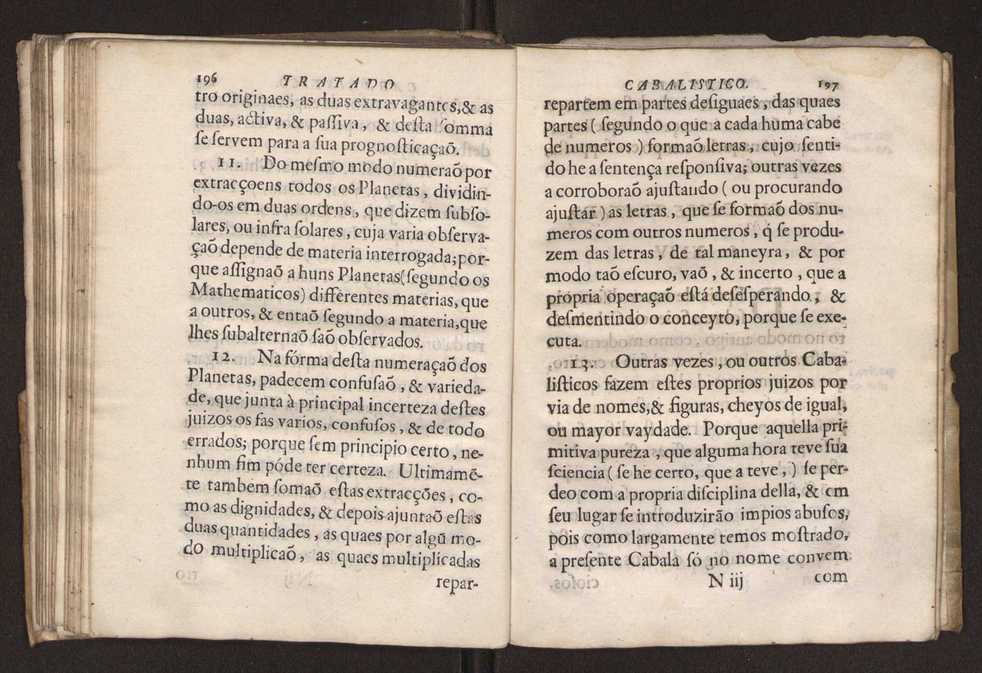 196 TRATADO
tro originaes, as duas extravagantes,& as
duas, activa, & passiva, & desta somma
se servem para a sua prognosticaçaõ.
11. Do mesmo modo numeraõ por
extracçoens todos os Planetas, dividin-
do-os em duas ordens, que dizem subso-
lares, ou infra solares, cuja varia observa-
çaõ depende de materia interrogada;por-
que assignaõ a huns Planetas(segundo os
Mathematicos) differentes materias, que
a outros, & entaõ segundo a materia,que
lhes subalternaõ saõ observados.
12. Na fórma desta numeraçaõ dos
Planetas, padecem confusaõ, & varieda-
de, que junta à principal incerteza destes
juizos os fas varios, confusos, & de todo
errados; porque sem principio certo, ne-
nhum fim póde ter certeza. Ultimamẽ-
te tambem somaõ estas extracções, co-
mo as dignidades, & depois ajuntaõ estas
duas quantidades, as quaes por algũ mo-
do multiplicaõ, as quaes multiplicadas
repar-
CABALISTICO. 197
repartem em partes desiguaes, das quaes
partes ( segundo o que a cada huma cabe
de numeros ) formaõ letras, cujo senti-
do he a sentença responsiva; outras vezes
a corroboraõ ajustando ( ou procurando
ajustar ) as letras, que se formaõ dos nu-
meros com outros numeros, q̃ se produ-
zem das letras, de tal maneyra, & por
modo taõ escuro, vaõ, & incerto, que a
propria operaçaõ está desesperando, &
desmentindo o conceyto, porque se exe-
cuta.
13. Outras vezes, ou outros Caba-
listicos fazem estes proprios juizos por
via de nomes,& figuras, cheyos de igual,
ou mayor vaydade. Porque aquella pri-
mitiva pureza, que alguma hora teve sua
sciencia ( se he certo, que a teve, ) se per-
deo com a propria disciplina della, & em
seu lugar se introduzirão impios abusos,
pois como largamente temos mostrado,
a presente Cabala só no nome convem
N iij com